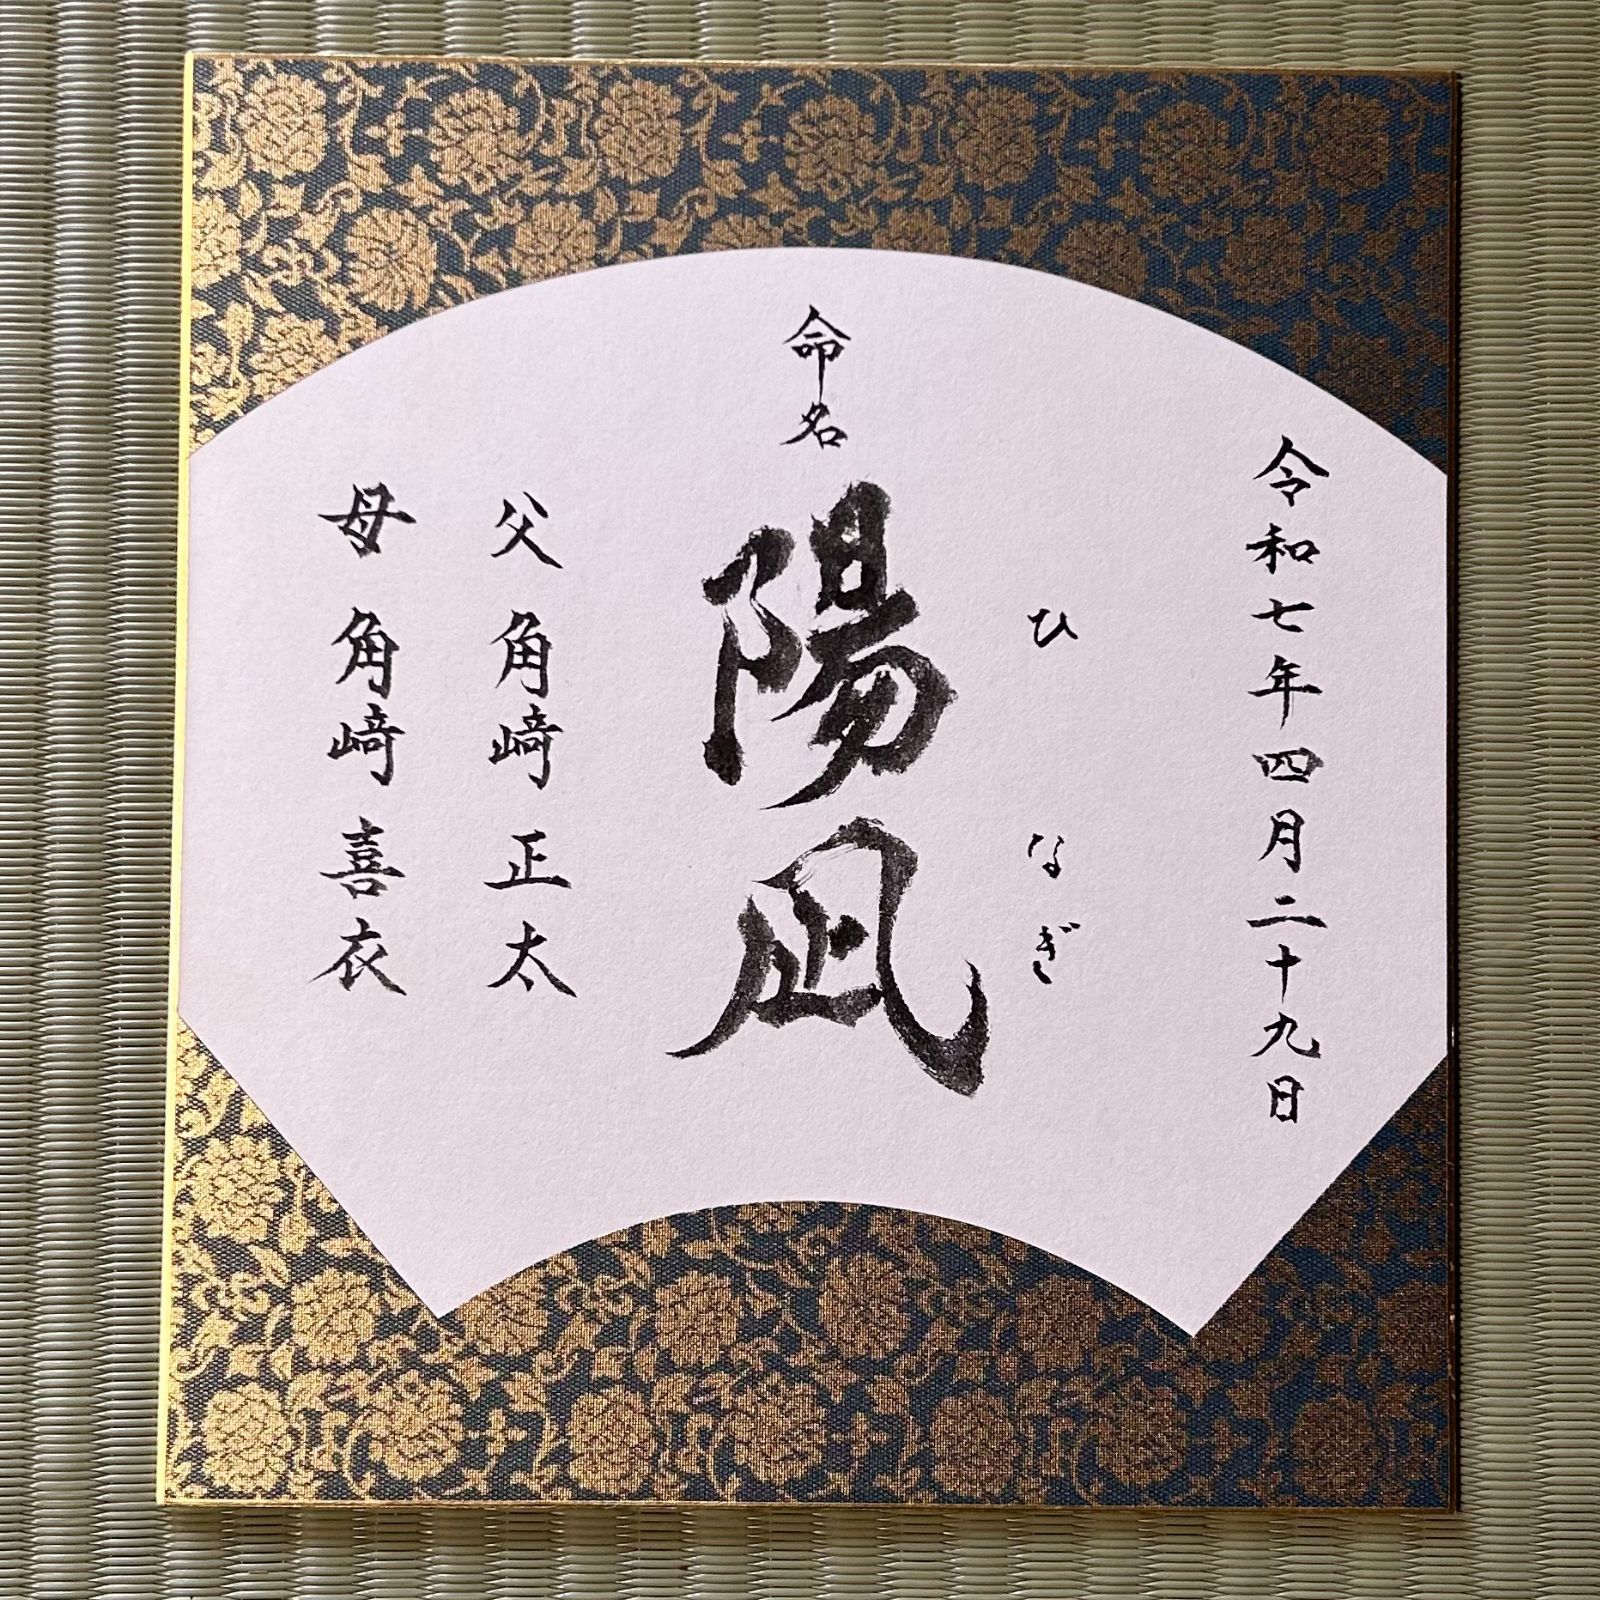 令和七年四月二十九日
ひなぎ
命名 陽凪
父 角﨑正太
母 角﨑喜衣